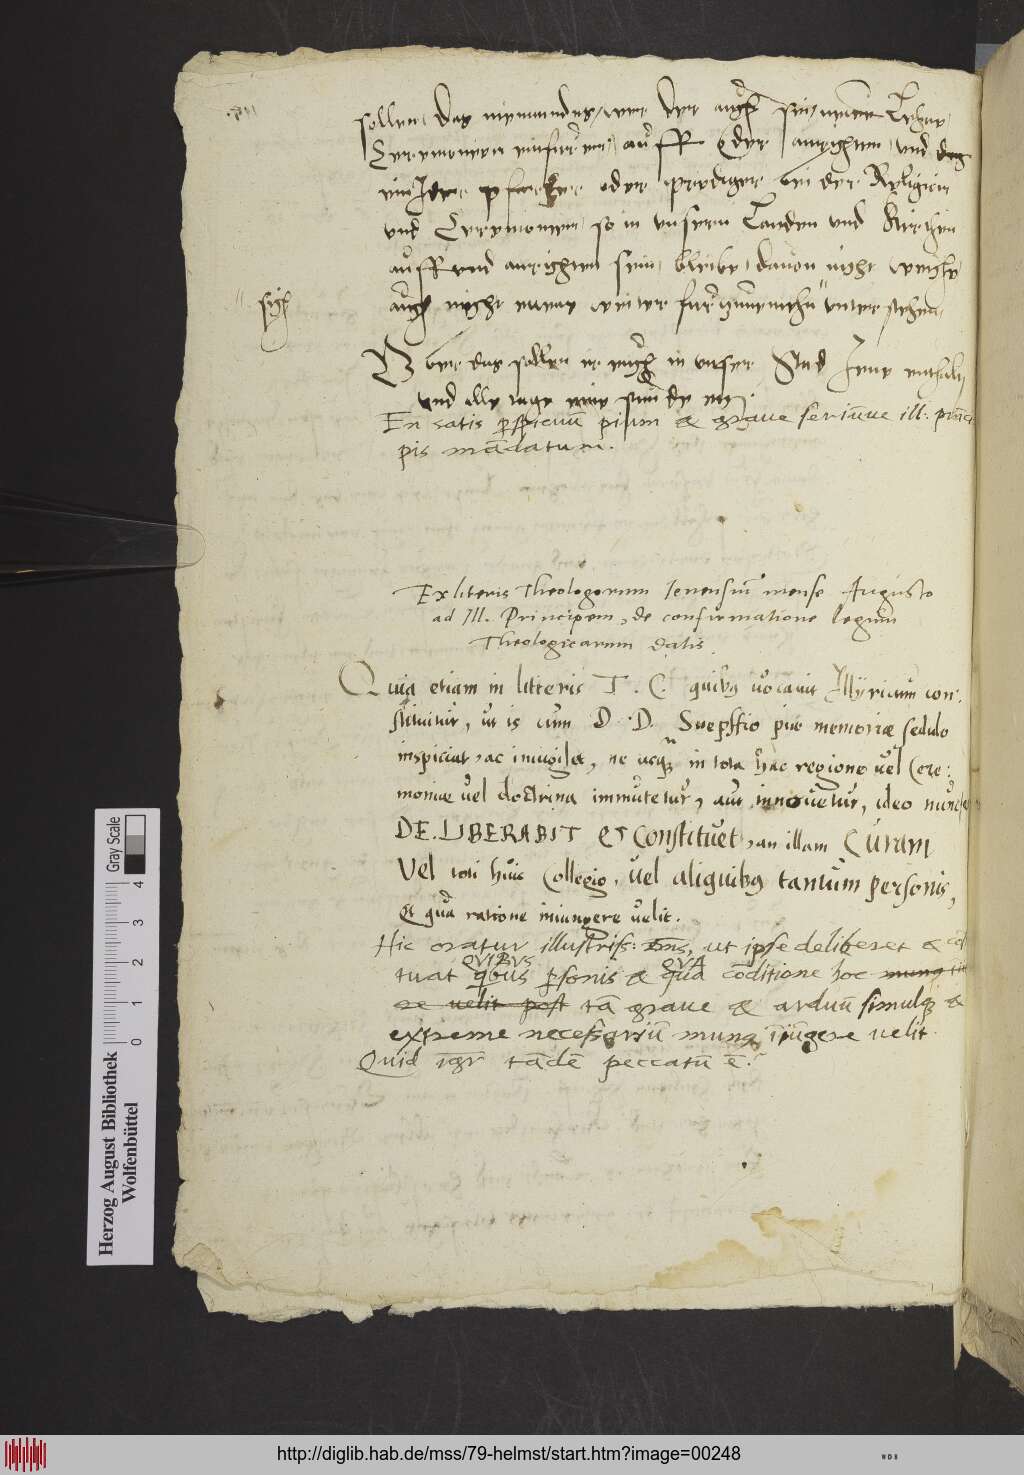 sollen, das niemandes, wer der auch sei, newe Lehre,
Ceremonien einfure, auff oder anrichten, und das
ein Jder pfarher oder prediger bei der Religion
und Ceremonien, so in unsern Landen und Kirchen
auffrend anrichten sein, bleibe, davon nicht weiche
auch nicht etwas weiter unterstehen,
sich
Uber das sollen ir euch in unser Stad Jene enthalt,
und alle tage eine stunde
En satis perspicuū pium & graue seriūue ill: prīci
pis mādatum.
Ex literis Theologorum Ienensiū mense Augusto
ad Ill. Principem, de confirmatione legum
Theologicarum datis.
Quia etiam in literis T. C. quibus uocauit Illyricum con:
stituitur, ut is cum D. D. Snepffio piae memoriae sedulo
inspiciat, ac inuigilet, ne usquam in tota hac regione uel Cere:
moniae uel doctrina immutetur, aut innouetur, ideo nunc
DE.LIBERABIT et constituet, an illam Curam
Vel toti huic Collegio, uel aliquibus tantum personis,
et qua ratione iniungere uelit.
Hic oratur illustriss: ut ipse deliberet &
QVIBVS QVA
tuat qbus psonis & qua cōditione hoc munq
re uelit post tā graue & arduū simulque &
extreme necessariū munq iiūgere uelit.
Quid igr tādē peccatū ē?
Herzog August Bibliothek
Wolfenbüttel
Gray Scale
0 1 2 3 4
http://diglib.hab.de/mss/79-helmst/start.htm?image=00248